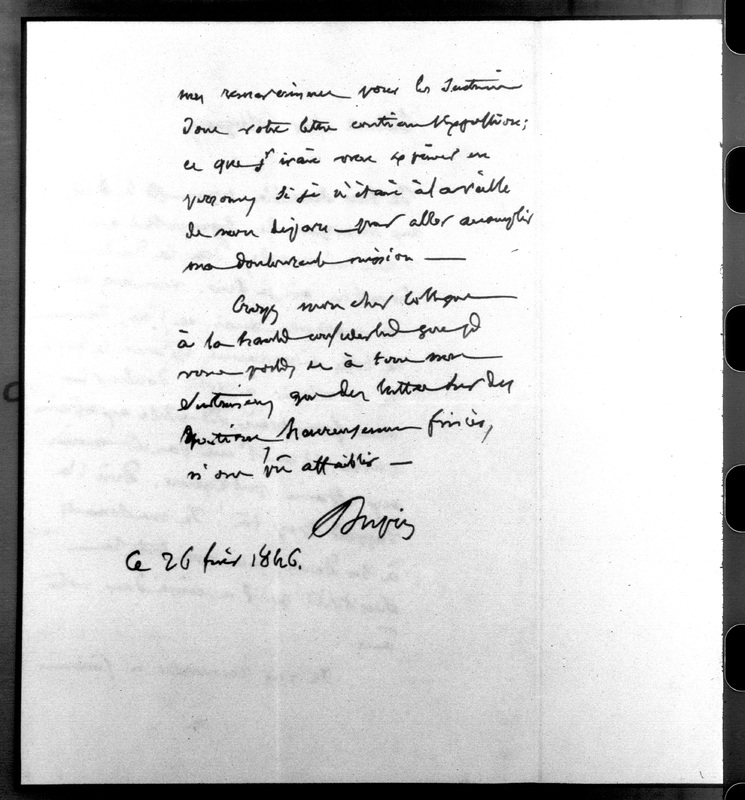 mes remerciemens pour les sentimens
dont votre lettre contient l'expression;
ce que j'irais vous exprimer en
personne, si je n'étais à la veille
de mon départ pour aller accomplir
ma douloureuse mission —
Croyez mon cher collègue
à la haute considération que je
vous porte, et à tous mes
sentimens que des luttes sur des
questions heureusement finies,
n'ont pu affaiblir —
Dupin
Ce 26 févr 1846.